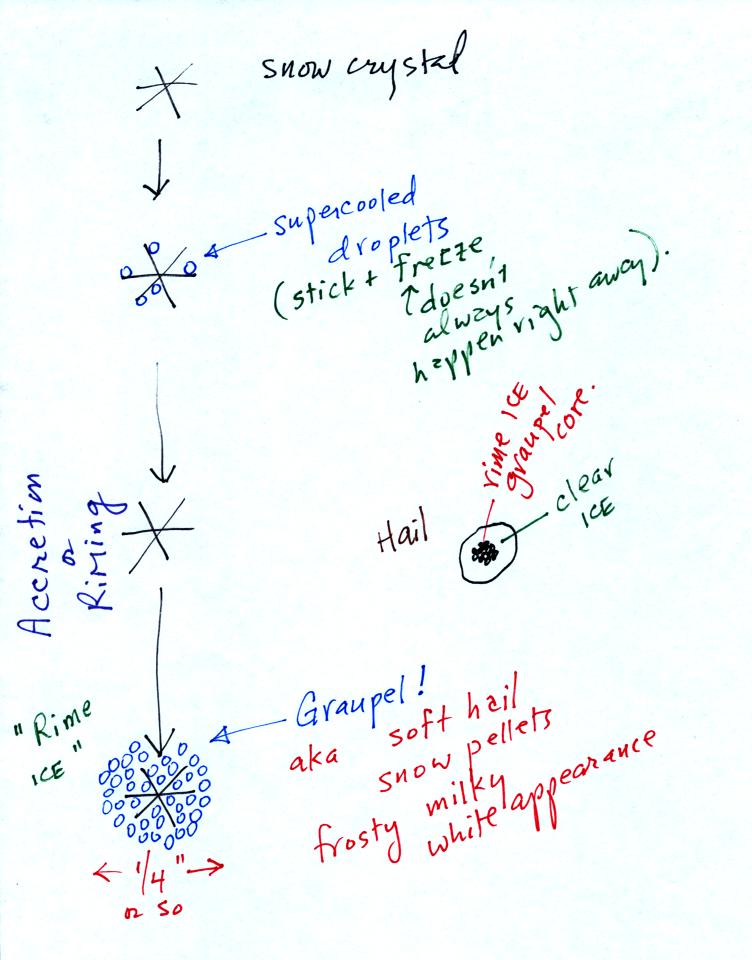 snow crystal
supercooled
droplets
(stick + freeze
↑doesn't
always
happen right away).
rime ICE
graupel
core.
clear
ICE
Hail
Accretion
or
Riming
"Rime
ICE"
Graupel!
aka soft hail
snow pellets
frosty milky
white appearance
← 1/4" →
or so